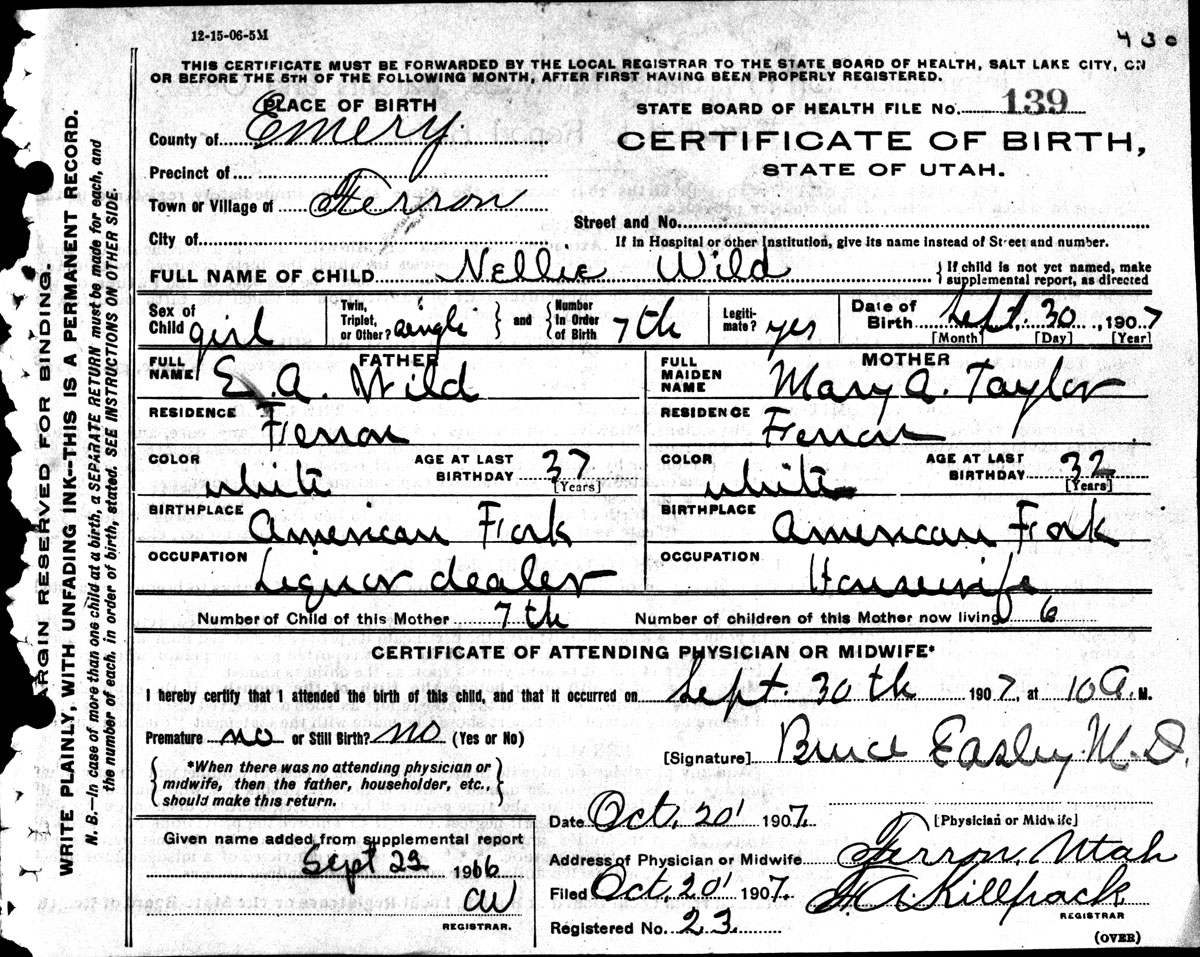 12-15-06-5M
430
THIS CERTIFICATE MUST BE FORWARDED BY THE LOCAL REGISTRAR TO THE STATE BOARD OF HEALTH, SALT LAKE CITY, ON
OR BEFORE THE 5TH OF THE FOLLOWING MONTH, AFTER FIRST HAVING BEEN PROPERLY REGISTERED.
ARGIN RESERVED FOR BINDING.
WRITE PLAINLY, WITH UNFADING INK--THIS IS A PERMANENT RECORD.
N. B.—In case of more than one child at a birth, a SEPARATE RETURN must be made for each, and
the number of each, in order of birth, stated. SEE INSTRUCTIONS ON OTHER SIDE.
PLACE OF BIRTH
County of Emery
Precinct of
Town or Village of Ferron
City of
STATE BOARD OF HEALTH FILE No. 139
CERTIFICATE OF BIRTH,
STATE OF UTAH.
Street and No.
If in Hospital or other Institution, give its name instead of Street and number.
FULL NAME OF CHILD Nellie Wild
{ If child is not yet named, make
supplemental report, as directed
Sex of Child girl
Twin, Triplet, or Other? single } and { Number in Order of Birth 7th
Legiti-mate? yes
Date of Birth Sept. 30, 1907
[Month] [Day] [Year]
FATHER
FULL NAME E. A. Wild
RESIDENCE Ferron
COLOR white AGE AT LAST BIRTHDAY 37 [Years]
BIRTHPLACE American Fork
OCCUPATION Liquor dealer
MOTHER
FULL MAIDEN NAME Mary A. Taylor
RESIDENCE Ferron
COLOR white AGE AT LAST BIRTHDAY 32 [Years]
BIRTHPLACE American Fork
OCCUPATION Housewife
Number of Child of this Mother 7th Number of children of this Mother now living 6
CERTIFICATE OF ATTENDING PHYSICIAN OR MIDWIFE*
I hereby certify that I attended the birth of this child, and that it occurred on Sept. 30th 1907, at 10 A. M.
Premature no or Still Birth? no (Yes or No)
[Signature] Bruce Easley M.D.
{ *When there was no attending physician or
midwife, then the father, householder, etc.,
should make this return. }
[Physician or Midwife]
Date Oct. 20' 1907.
Given name added from supplemental report
Sept 23 1916
CW
REGISTRAR.
Address of Physician or Midwife Ferron, Utah
Filed Oct. 20' 1907. Killpack
REGISTRAR
Registered No. 23.
(OVER)